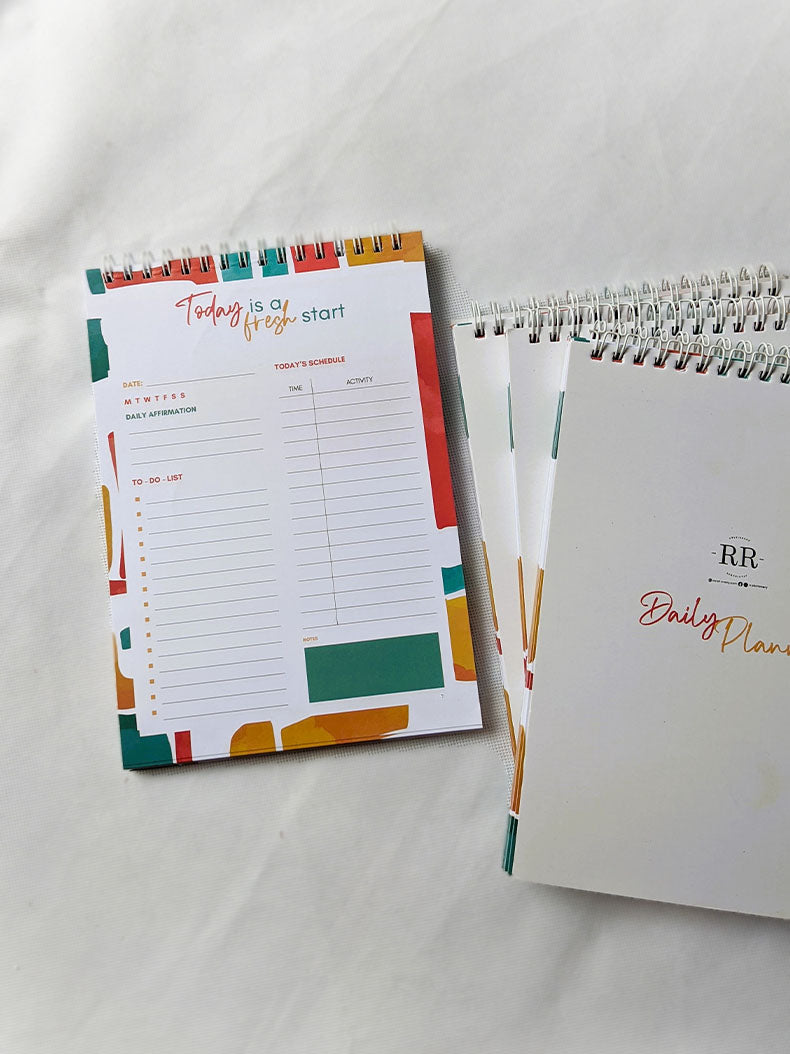 Today is a
fresh start
DATE:
M T W T F S S
DAILY AFFIRMATION
TO - DO - LIST
TODAY'S SCHEDULE
TIME ACTIVITY
NOTES
RR
Daily